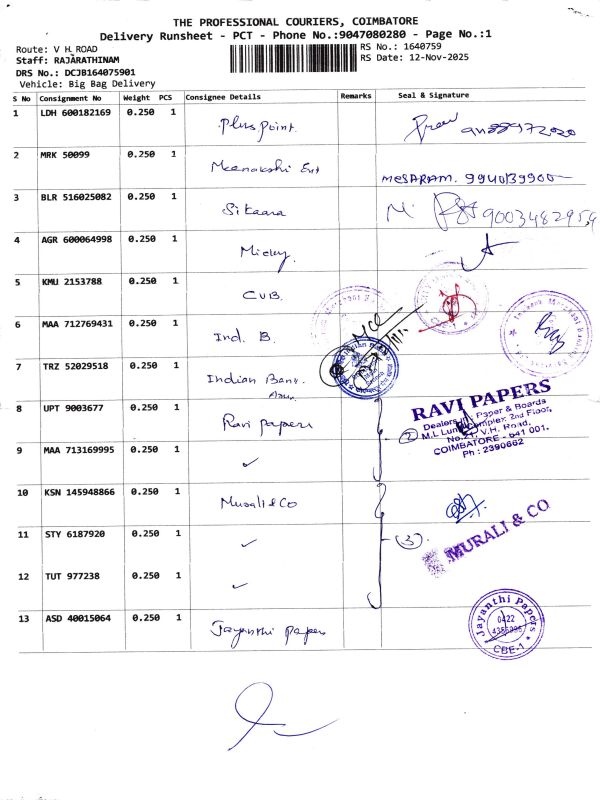 THE PROFESSIONAL COURIERS, COIMBATORE
Delivery Runsheet - PCT - Phone No.:9047080280 - Page No.:1
Route: V H ROAD
Staff: RAJARATHINAM
DRS No.: DCJB164075901
Vehicle: Big Bag Delivery
RS No.: 1640759
RS Date: 12-Nov-2025
S No Consignment No Weight PCS Consignee Details Remarks Seal & Signature
1 LDH 600182169 0.250 1 Plus Point.
2 MRK 50099 0.250 1 Meenakshi Ent MESARAM.
3 BLR 516025082 0.250 1 Sikaara
4 AGR 600064998 0.250 1 Micky.
5 KMU 2153788 0.250 1 CUB.
6 MAA 712769431 0.250 1 Ind. B.
7 TRZ 52029518 0.250 1 Indian Bank.
8 UPT 9003677 1 0.250 Ravi papers (2)
RAVI PAPERS
Dealers in: Paper & Boards
2nd Floor,
V.H. Road,
COIMBATORE - 641 001.
Ph : 2390662
9 MAA 713169995 0.250 1 ✓
10 KSN 145948866 0.250 1 Murali & Co
11 STY 6187920 0.250 1 ✓ (3)
MURALI & CO
12 TUT 977238 0.250 1 ✓
13 ASD 40015064 0.250 1 Jayanthi papers
Jayanthi Papers
0422
CBE-1